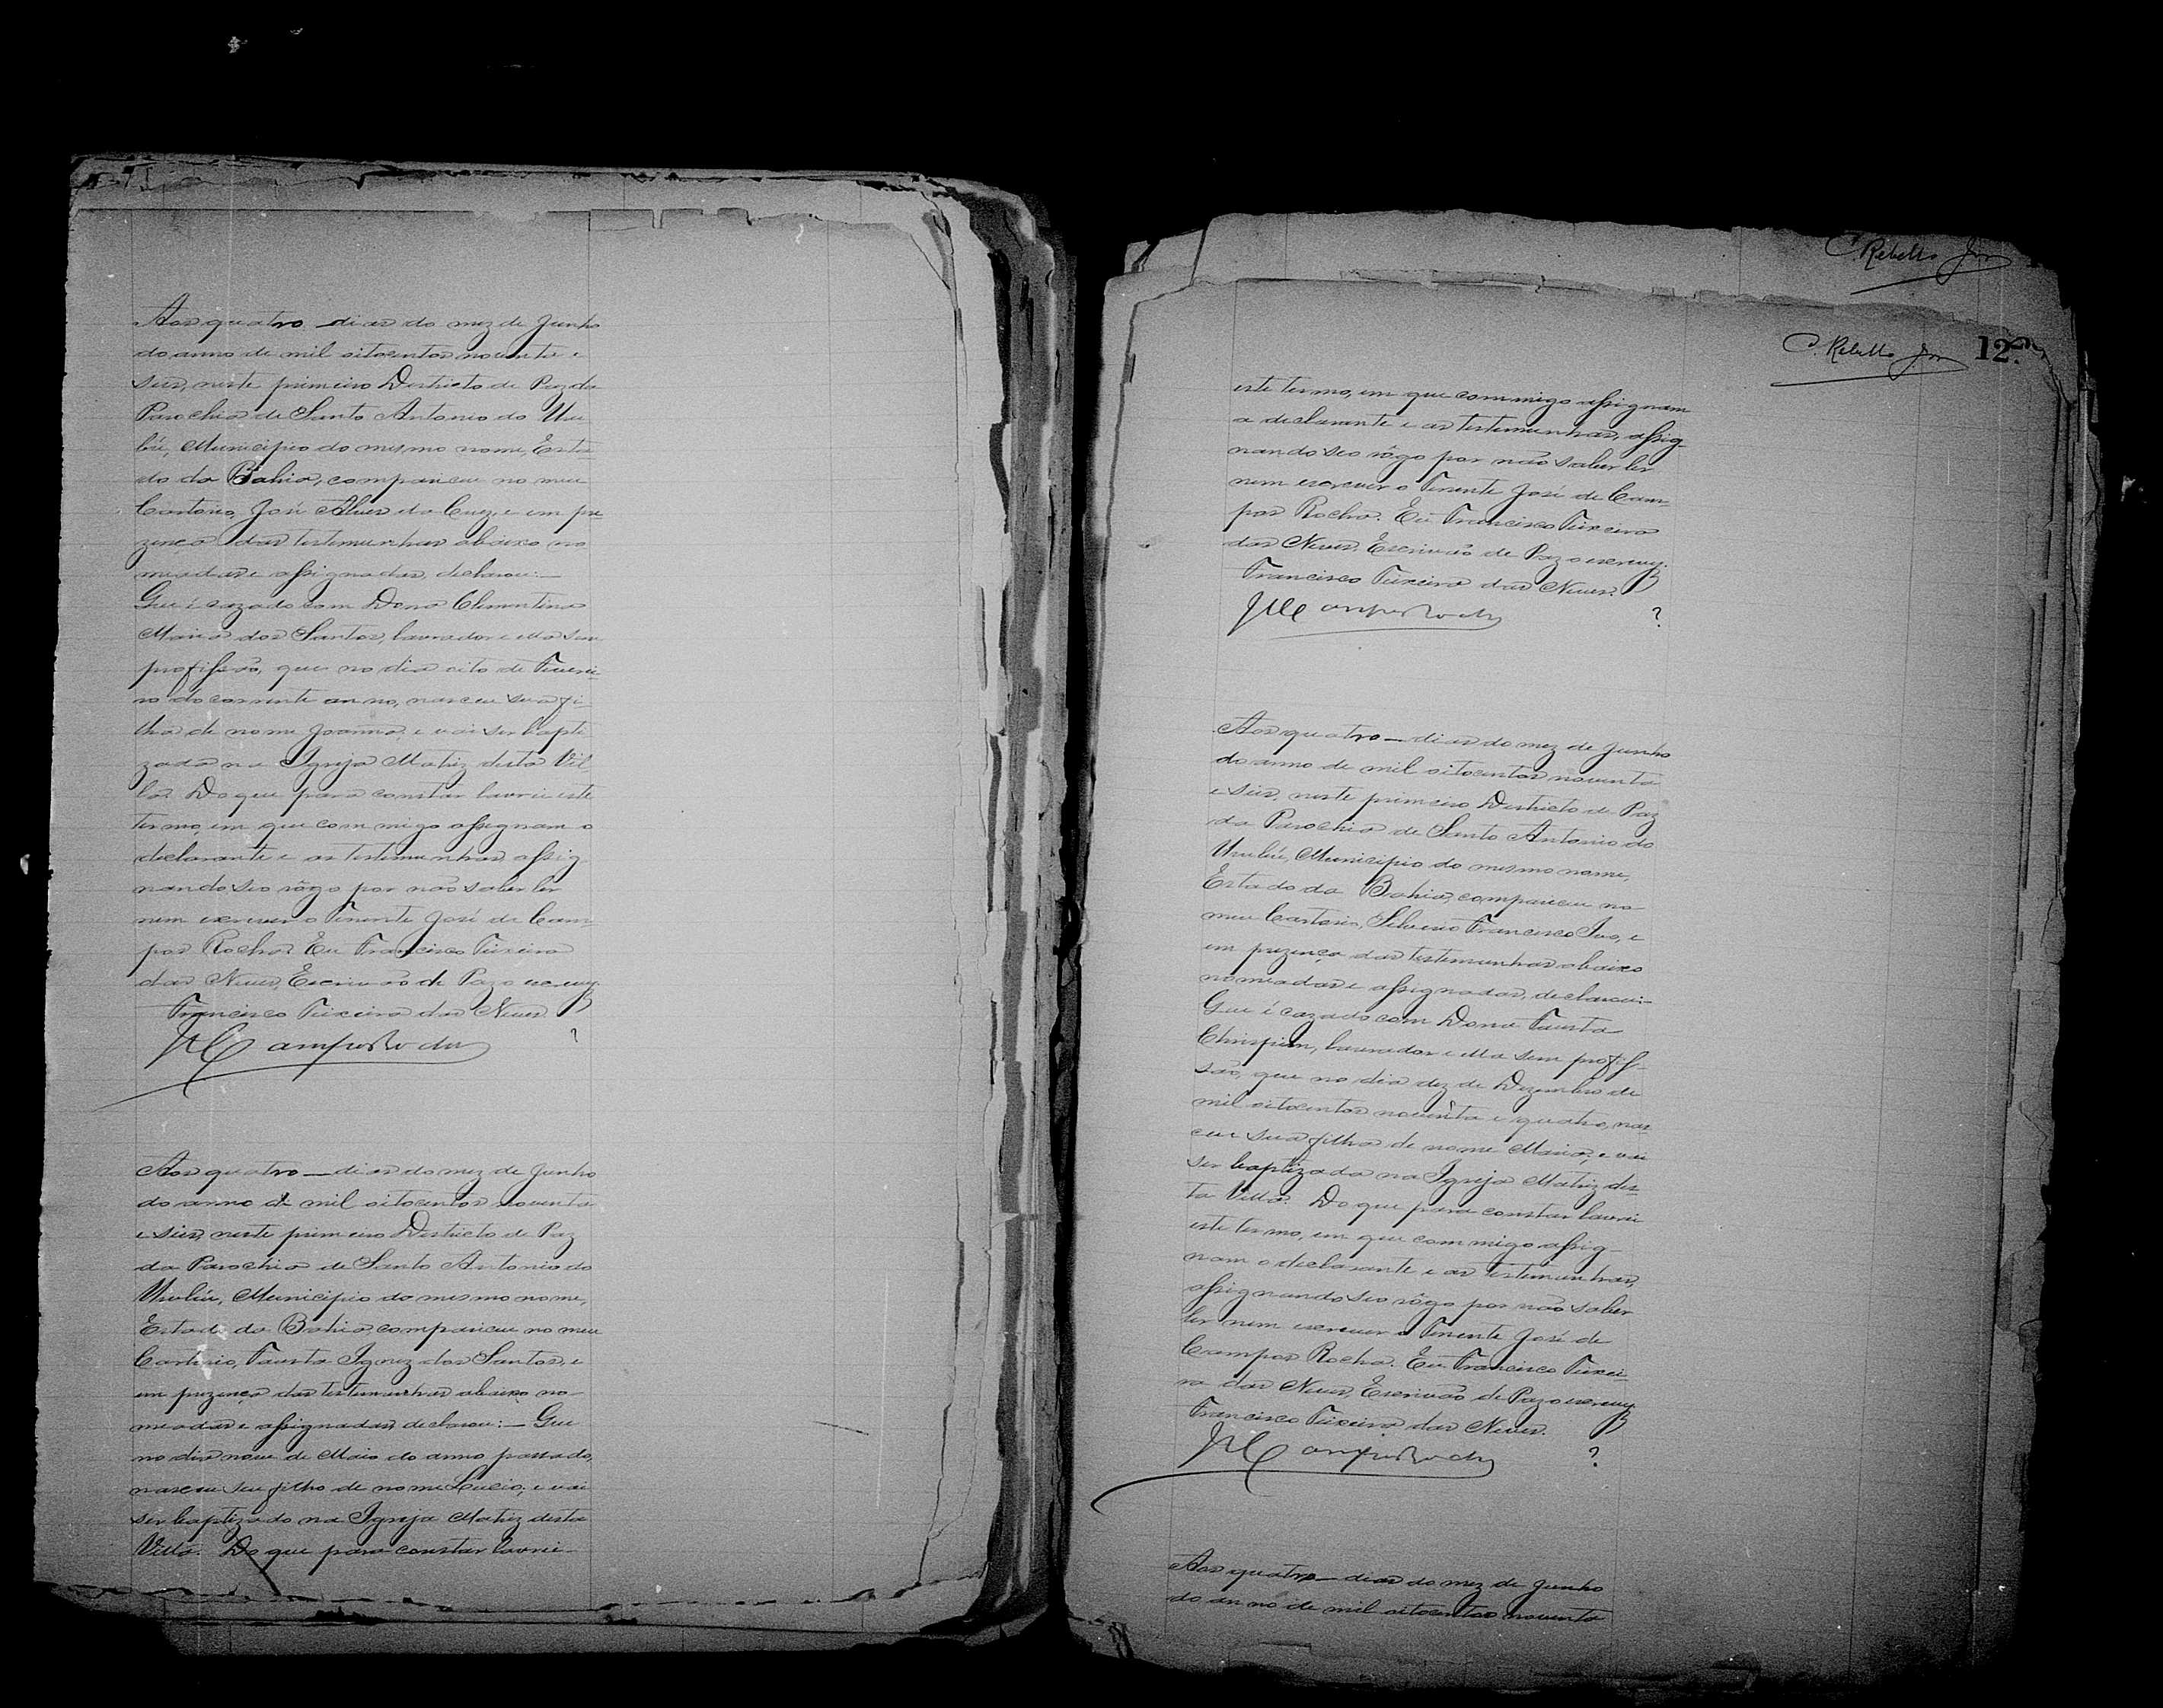 Aos quatro dias do mez de Junho
do anno de mil oitocentos noventa e
seis, neste primeiro Destricto de Paz da
Parochia de Santo Antonio do Uru
bú, Municipio do mesmo nome, Esta
do da Bahia, compareceu no meu
Cartorio, José Alves da Cruz, e em pre
zença das testemunhas abaixo no
meadas e assignadas, declarou:—
Que é cazado com Dona Clementina
Maria dos Santos, lavrador e ella sem
profissão, que no dia oito de Feverei
ro do corrente anno, nasceu sua fi
lha de nome Joanna e vai ser bapti
zada na Igreja Matriz desta Vil
la. Do que para constar lavrei este
termo, em que commigo assignam o
declarante e as testemunhas, assig
nando seo rôgo por não saber ler
nem escrever o Tenente José de Cam
pos Rocha. Eu Francisco Teixeira
das Neves, Escrivão de Paz o escrevy.
Francisco Teixeira das Neves
JCamposRocha
Aos quatro — dias do mez de Junho
do anno de mil oitocentos noventa
e seis, neste primeiro Destricto de Paz
da Parochia de Santo Antonio do
Urubú, Municipio do mesmo nome,
Estado da Bahia, compareceu no meu
Cartorio, Fausta Ignez dos Santos, e
em prezença das testemunhas abaixo no
meadas e assignadas, declarou:— Que
no dia nove de Maio do anno passado,
nasceu seu filho de nome Lucio, e vai
ser baptizado na Igreja Matriz desta
Villa. Do que para constar lavrei
C. Rebello Jor
C. Rebello Jor 12
este termo, em que commigo assignam
a declarante e as testemunhas, assig-
nando seo rôgo por não saber ler
nem escrever o Tenente José de Cam-
pos Rocha. Eu Francisco Teixeira
das Neves, Escrivão de Paz o escrevy.
Francisco Teixeira das Neves.
JCamposRocha
Aos quatro — dias do mez de Junho
do anno de mil oitocentos noventa
e seis, neste primeiro Destricto de Paz
da Parochia de Santo Antonio do
Urubú, Municipio do mesmo nome,
Estado da Bahia, compareceu no
meu Cartorio, Silverio Francisco Ivo, e
em prezença das testemunhas abaixo
nomeadas e assignadas, declarou:—
Que é cazado com Dona Fausta
Chrispim, lavrador e ella sem profis-
são, que no dia dez de Dezembro de
mil oitocentos noventa e quatro, nas
ceu sua filha de nome Maria, e vai
ser baptizada na Igreja Matriz des-
ta Villa. Do que para constar lavrei
este termo, em que commigo assig-
nam o declarante e as testemunhas,
assignando seo rôgo por não saber
ler nem escrever o Tenente José de
Campos Rocha. Eu Francisco Teixei-
ra das Neves, Escrivão de Paz o escrevy.
Francisco Teixeira das Neves.
JCamposRocha
Aos quatro — dias do mez de Junho
do anno de mil oitocentos noventa